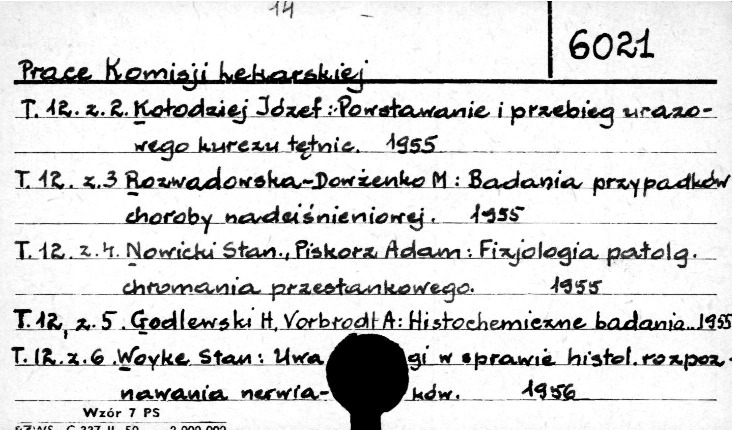 14
6021
Prace Komisji Lekarskiej
T. 12. z. 2. Kołodziej Józef: Powstawanie i przebieg urazo-
wego kurczu tętnic. 1955
T. 12. z. 3 Rozwadowska-Dowżenko M: Badania przypadków
choroby nadciśnieniowej. 1955
T. 12. z. 4. Nowicki Stan., Piskorz Adam: Fizjologia patolg.
chromania przestankowego. 1955
T. 12, z. 5. Godlewski H, Vorbrodt A: Histochemiczne badania.. 1955
T. 12. z. 6. Woyke Stan: Uwa gi w sprawie histol. rozpoz-
nawania nerwia- ków. 1956
Wzór 7 PS